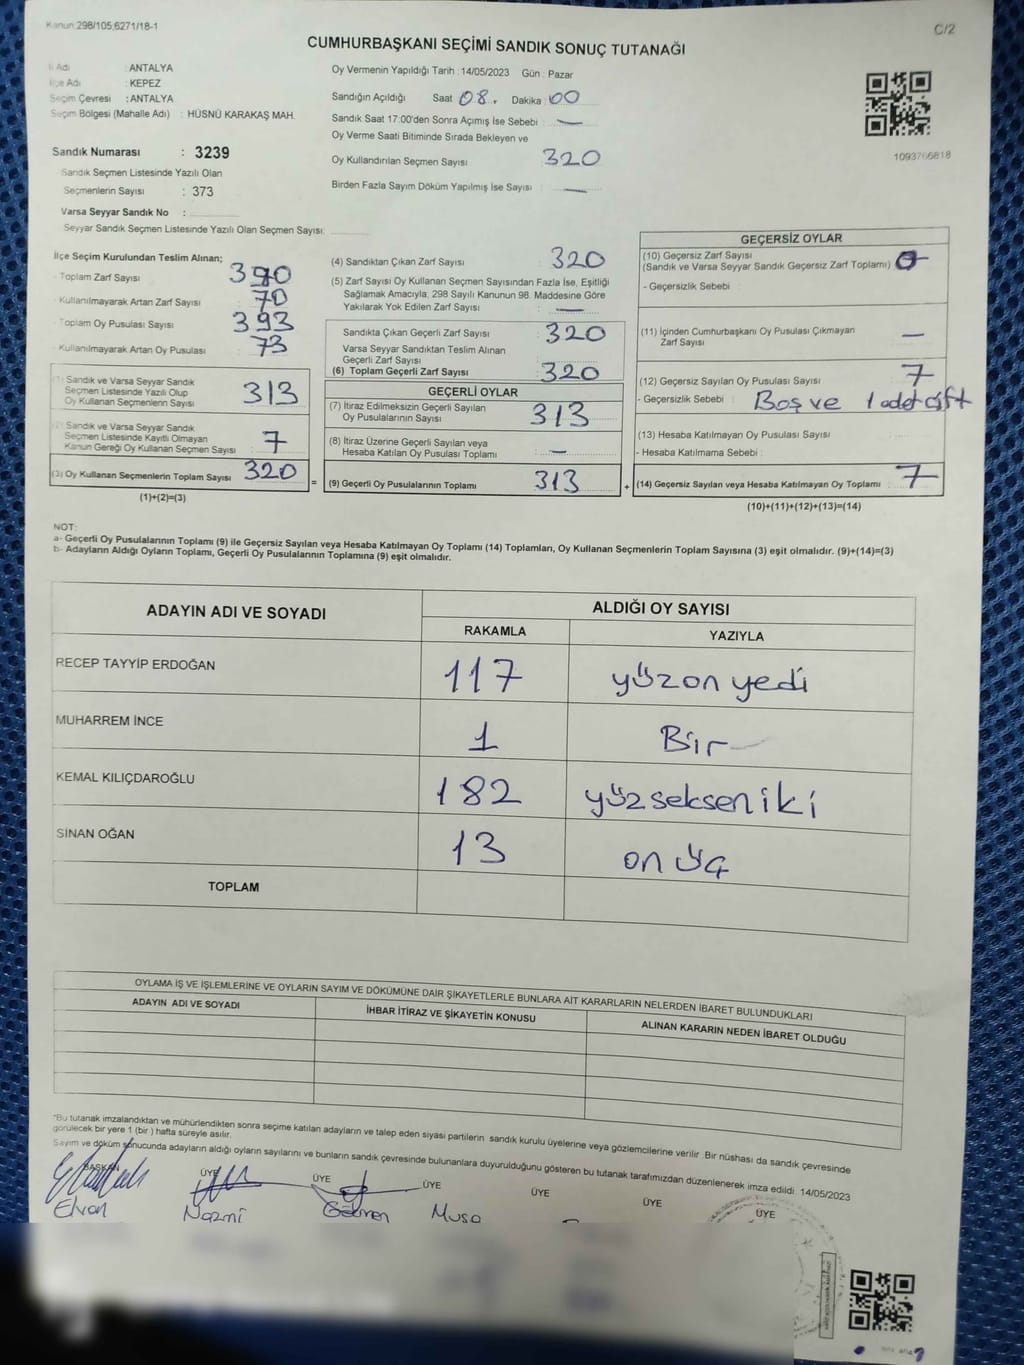 Kanun:298/105,6271/18-1
C/2
CUMHURBAŞKANI SEÇİMİ SANDIK SONUÇ TUTANAĞI
İl Adı : ANTALYA
İlçe Adı : KEPEZ
Seçim Çevresi : ANTALYA
Seçim Bölgesi (Mahalle Adı) : HÜSNÜ KARAKAŞ MAH.
Sandık Numarası : 3239
Sandık Seçmen Listesinde Yazılı Olan
Seçmenlerin Sayısı : 373
Varsa Seyyar Sandık No :
Seyyar Sandık Seçmen Listesinde Yazılı Olan Seçmen Sayısı:
Oy Vermenin Yapıldığı Tarih : 14/05/2023 Gün : Pazar
Sandığın Açıldığı Saat 08. Dakika : 00
Sandık Saat 17:00'den Sonra Açımış İse Sebebi : —
Oy Verme Saati Bitiminde Sırada Bekleyen ve
Oy Kullandırılan Seçmen Sayısı : 320
Birden Fazla Sayım Döküm Yapılmış İse Sayısı : —
1093766818
İlçe Seçim Kurulundan Teslim Alınan;
Toplam Zarf Sayısı : 390
Kullanılmayarak Artan Zarf Sayısı : 70
Toplam Oy Pusulası Sayısı : 393
Kullanılmayarak Artan Oy Pusulası : 73
(1) Sandık ve Varsa Seyyar Sandık
Seçmen Listesinde Yazılı Olup
Oy Kullanan Seçmenlerin Sayısı : 313
(2) Sandık ve Varsa Seyyar Sandık
Seçmen Listesinde Kayıtlı Olmayan
Kanun Gereği Oy Kullanan Seçmen Sayısı : 7
(3) Oy Kullanan Seçmenlerin Toplam Sayısı : 320
(1)+(2)=(3)
(4) Sandıktan Çıkan Zarf Sayısı : 320
(5) Zarf Sayısı Oy Kullanan Seçmen Sayısından Fazla İse, Eşitliği
Sağlamak Amacıyla, 298 Sayılı Kanunun 98. Maddesine Göre
Yakılarak Yok Edilen Zarf Sayısı : —
Sandıkta Çıkan Geçerli Zarf Sayısı : 320
Varsa Seyyar Sandıktan Teslim Alınan
Geçerli Zarf Sayısı :
(6) Toplam Geçerli Zarf Sayısı : 320
GEÇERLİ OYLAR
(7) İtiraz Edilmeksizin Geçerli Sayılan
Oy Pusulalarının Sayısı : 313
(8) İtiraz Üzerine Geçerli Sayılan veya
Hesaba Katılan Oy Pusulası Toplamı : —
= (9) Geçerli Oy Pusulalarının Toplamı : 313 +
GEÇERSİZ OYLAR
(10) Geçersiz Zarf Sayısı
(Sandık ve Varsa Seyyar Sandık Geçersiz Zarf Toplamı) :
- Geçersizlik Sebebi :
(11) İçinden Cumhurbaşkanı Oy Pusulası Çıkmayan
Zarf Sayısı : —
(12) Geçersiz Sayılan Oy Pusulası Sayısı : 7
- Geçersizlik Sebebi : Boş ve 1 adet çift
(13) Hesaba Katılmayan Oy Pusulası Sayısı :
- Hesaba Katılmama Sebebi :
(14) Geçersiz Sayılan veya Hesaba Katılmayan Oy Toplamı : 7
(10)+(11)+(12)+(13)=(14)
NOT:
a- Geçerli Oy Pusulalarının Toplamı (9) ile Geçersiz Sayılan veya Hesaba Katılmayan Oy Toplamı (14) Toplamları, Oy Kullanan Seçmenlerin Toplam Sayısına (3) eşit olmalıdır. (9)+(14)=(3)
b- Adayların Aldığı Oyların Toplamı, Geçerli Oy Pusulalarının Toplamına (9) eşit olmalıdır.
ADAYIN ADI VE SOYADI ALDIĞI OY SAYISI
RAKAMLA YAZIYLA
RECEP TAYYİP ERDOĞAN 117 yüzonyedi
MUHARREM İNCE 1 Bir
KEMAL KILIÇDAROĞLU 182 yüzsekseniki
SİNAN OĞAN 13 onüç
TOPLAM
OYLAMA İŞ VE İŞLEMLERİNE VE OYLARIN SAYIM VE DÖKÜMÜNE DAİR ŞİKAYETLERLE BUNLARA AİT KARARLARIN NELERDEN İBARET BULUNDUKLARI
ADAYIN ADI VE SOYADI İHBAR İTİRAZ VE ŞİKAYETİN KONUSU ALINAN KARARIN NEDEN İBARET OLDUĞU
*Bu tutanak imzalandıktan ve mühürlendikten sonra seçime katılan adayların ve talep eden siyasi partilerin sandık kurulu üyelerine veya gözlemcilerine verilir. Bir nüshası da sandık çevresinde
görülecek bir yere 1 (bir) hafta süreyle asılır.
Sayım ve döküm sonucunda adayların aldığı oyların sayılarını ve bunların sandık çevresinde bulunanlara duyurulduğunu gösteren bu tutanak tarafımızdan düzenlenerek imza edildi. 14/05/2023
BAŞKAN ÜYE ÜYE ÜYE ÜYE ÜYE ÜYE
Elvan Nazmi Gökmen Musa